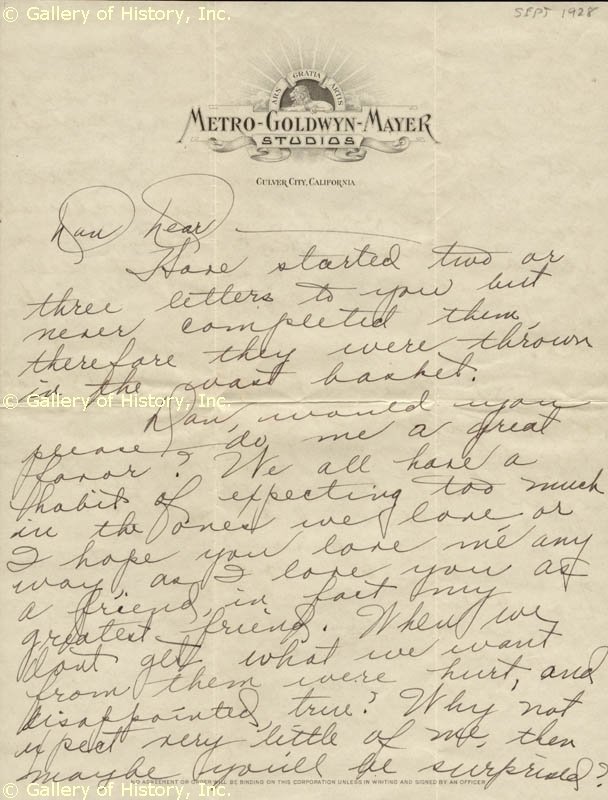 © Gallery of History, Inc.
SEPT 1928
ARS GRATIA ARTIS
METRO-GOLDWYN-MAYER
STUDIOS
CULVER CITY, CALIFORNIA
Dan Dear
Have started two or
three letters to you but
never completed them,
therefore they were thrown
in the wast basket.
© Gallery of History, Inc.
Dan, would you
please do me a great
favor? We all have a
habit of expecting too much
in the ones we love or
I hope you love me any
way as I love you as
a friend, in fact my
greatest friend. When we
© Gallery of History, Inc.
dont get what we want
from them were hurt, and
disappointed, true? Why not
expect very little of me, then
maybe you'll be surprised?
NO AGREEMENT OR ORDER WILL BE BINDING ON THIS CORPORATION UNLESS IN WRITING AND SIGNED BY AN OFFICER
© Gallery of History, Inc.